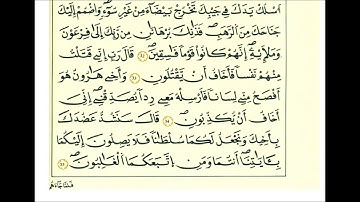 اَسْلُكْ يَدَكَ فِي جَيْبِكَ تَخْرُجْ بَيْضَآءَ مِنْ غَيْرِ سُوٓءٍ وَاضْمُمْ إِلَيْكَ
جَنَاحَكَ مِنَ اَلرَّهَبِ فَذَٰنِكَ بُرْهَٰنَٰنِ مِن رَّبِّكَ إِلَىٰ فِرْعَوْنَ
وَمَلَإِيْهِۦٓ إِنَّهُمْ كَانُوا قَوْمًا فَٰسِقِينَ قَالَ رَبِّ إِنِّي قَتَلْتُ
مِنْهُمْ نَفْسًا فَأَخَافُ أَنْ يَّقْتُلُونِ وَأَخِي هَٰرُونُ هُوَ
أَفْصَحُ مِنِّي لِسَانًا فَأَرْسِلْهُ مَعِي رِدًا يُصَدِّقْنِي إِنِّيَ
أَخَافُ أَنْ يُّكَذِّبُونِ قَالَ سَنَشُدُّ عَضُدَكَ
بِأَخِيكَ وَنَجْعَلُ لَكُمَا سُلْطَٰنًا فَلَا يَصِلُونَ إِلَيْكُمَا
بِـَٔايَٰتِنَا أَنتُمَا وَمَنِ اِتَّبَعَكُمَا اَلْغَٰلِبُونَ
فَلَمَّا جَآءَهُم